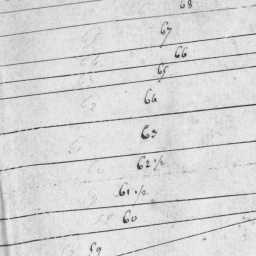 68
67
66
65
64
63
62 1/2
61 1/2
60
59